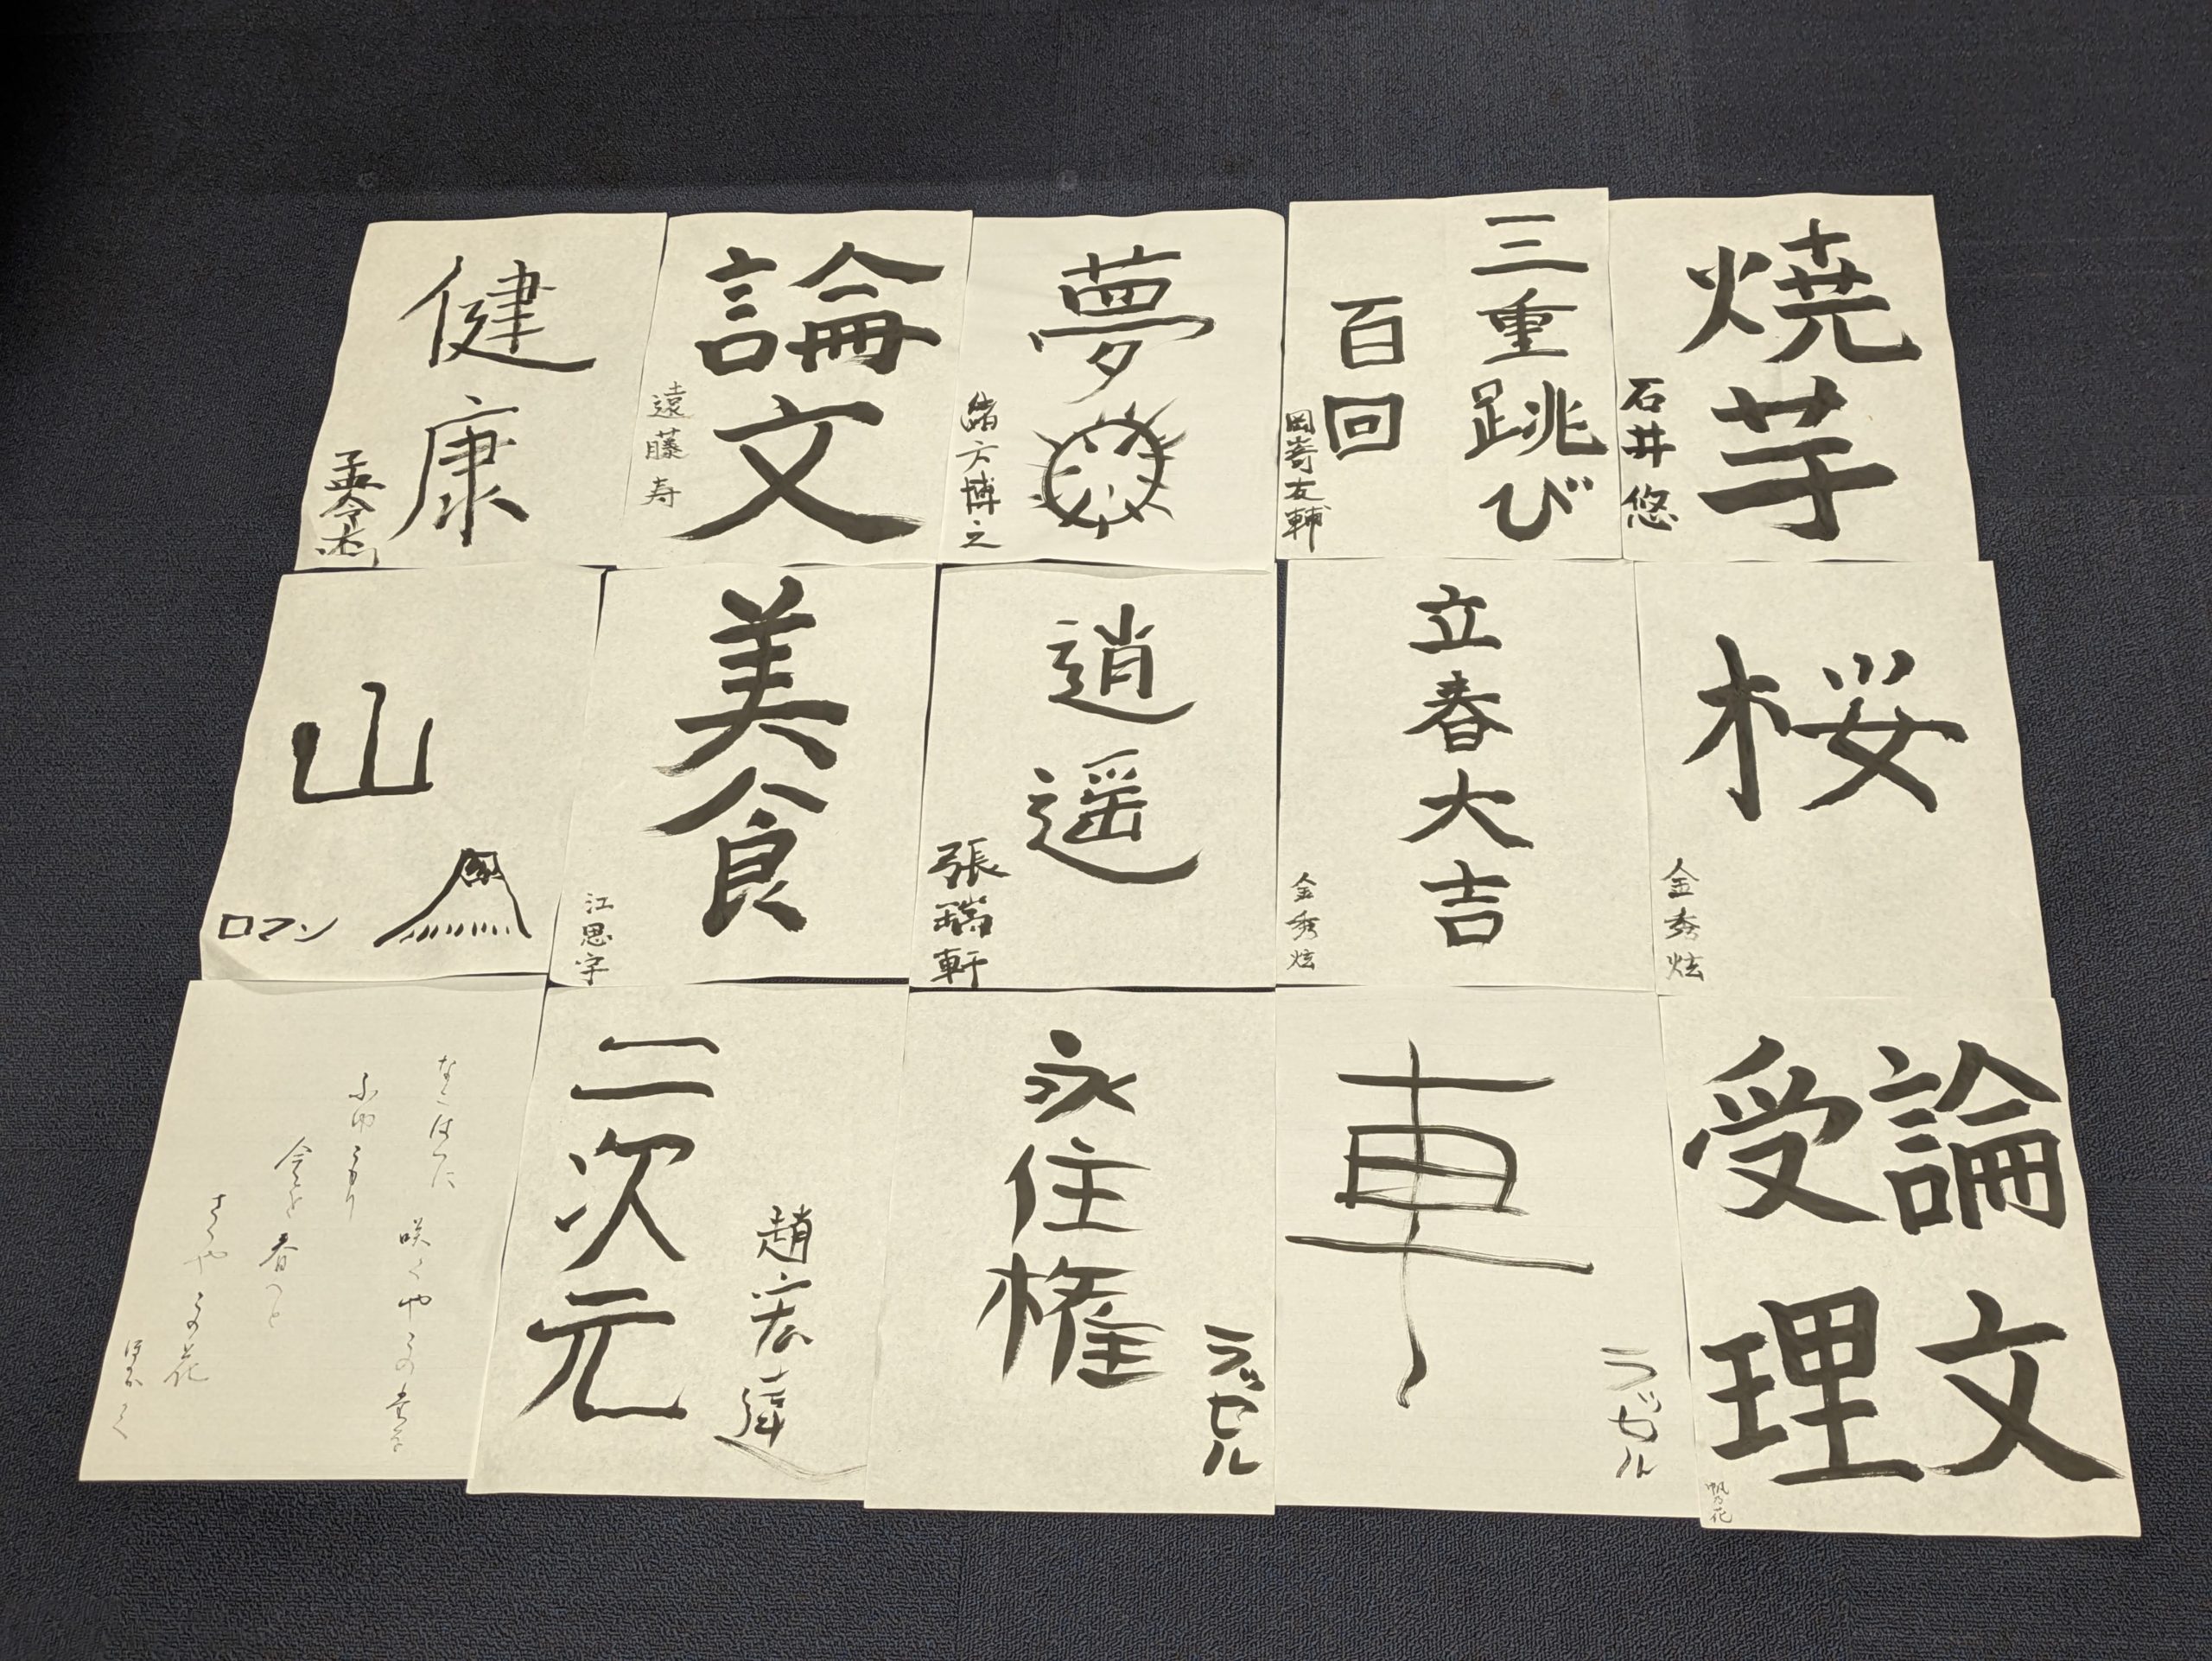 焼芋
石井悠
三重跳び
百回
岡嵜友輔
夢
緒方博之
論文
遠藤寿
健康
桜
金秀炫
立春大吉
金秀炫
逍遥
張瑞軒
美食
江思宇
山
ロマン
論文
受理
帆乃花
車
ラッセル
永住権
ラッセル
二次元
趙宏
なにはつに
咲くやこの花
ふゆこもり
今を春へと
さくやこの花